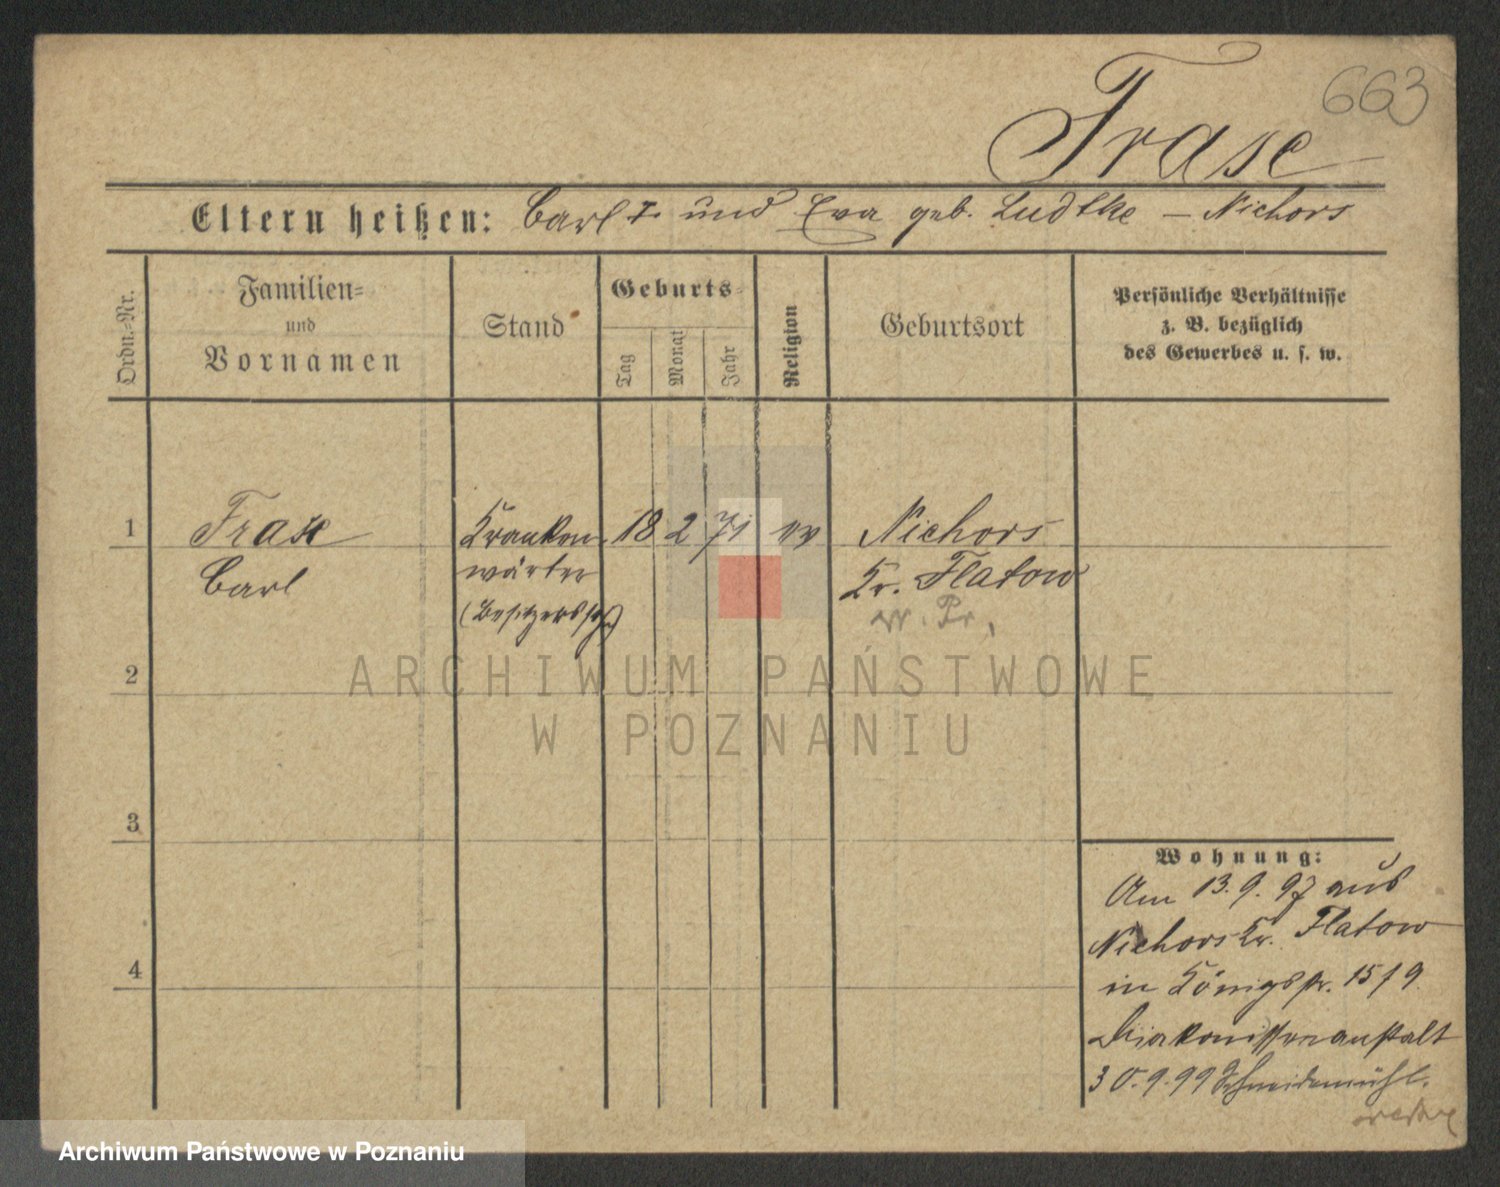 663
Frase
Eltern heißen: Carl I. und Eva geb. Ludtke – Nichors
Ordn.-Nr.
Familien- und Vornamen
Stand
Geburts-
Tag
Monat
Jahr
Religion
Geburtsort
Persönliche Verhältnisse
z. B. bezüglich
des Gewerbes u. s. w.
1 Frase Kranken 18 2 71 ev Nichors
Carl wärter Kr. Flatow
(Besitzerssohn) W. Pr.
2
3
4
Wohnung:
Am 13.9.97 aus
Nichors Kr. Flatow
in Königstr. 15/9
Diakonissenanstalt
30.9.99 Schneidemühl.
ARCHIWUM PAŃSTWOWE
W POZNANIU
Archiwum Państwowe w Poznaniu